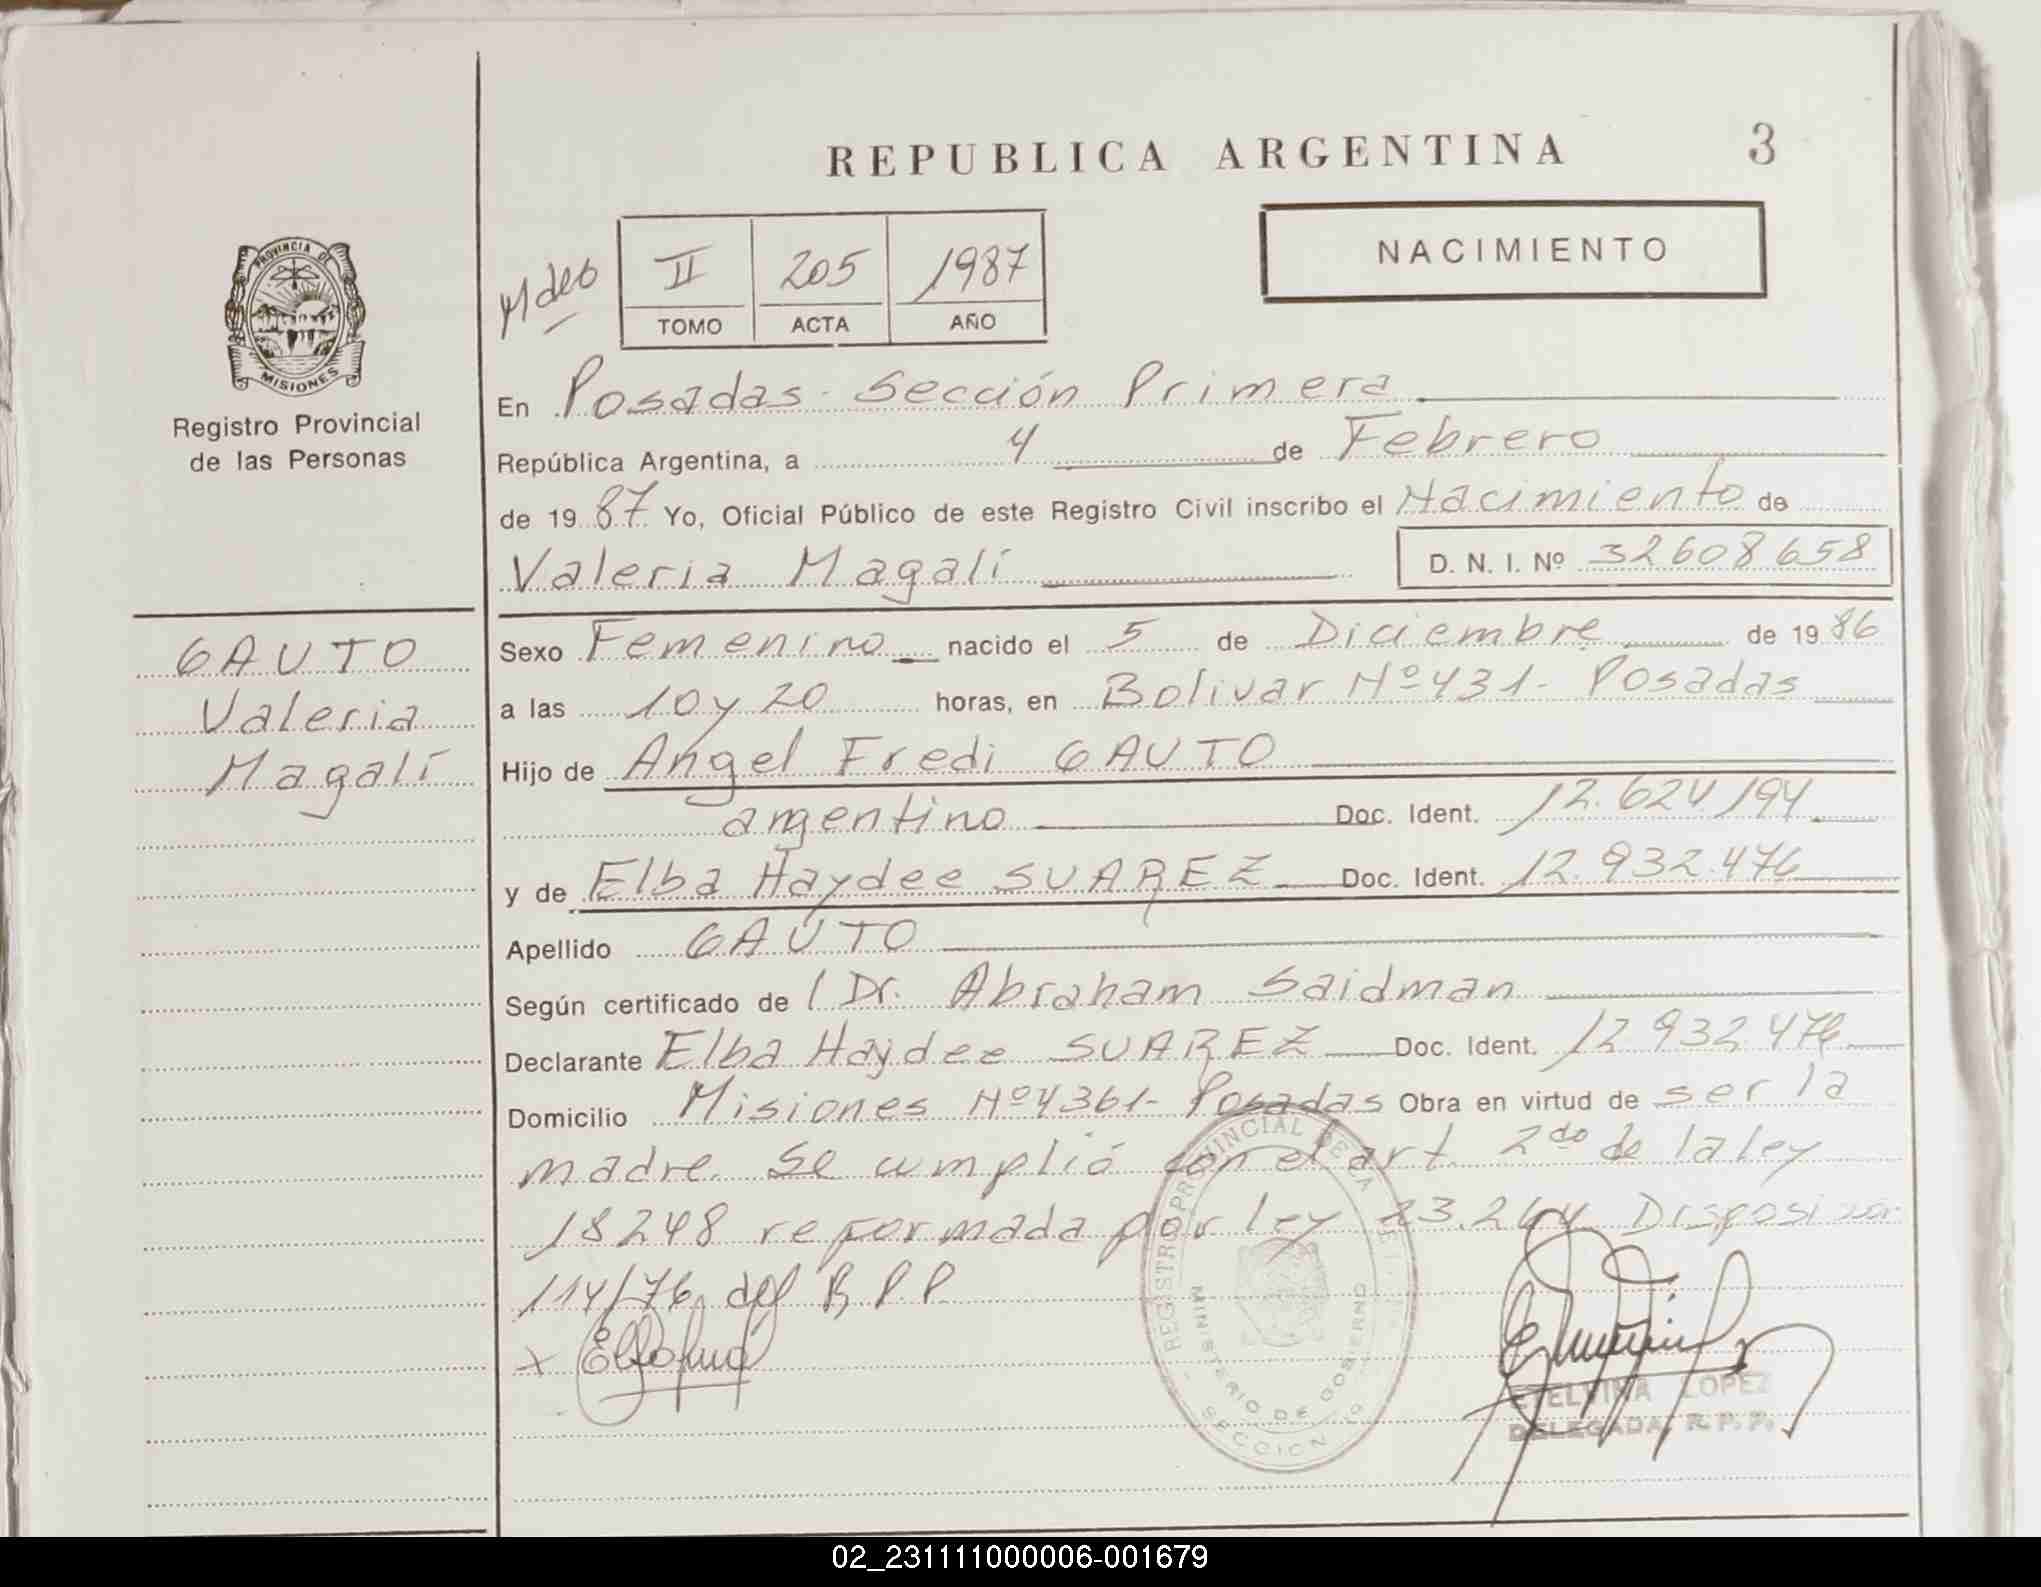 REPUBLICA ARGENTINA 3
NACIMIENTO
II 205 1987
TOMO ACTA AÑO
PROVINCIA DE
MISIONES
Registro Provincial
de las Personas
GAUTO
Valeria
Magalí
En Posadas - Sección Primera
República Argentina, a 4 de Febrero
de 1987 Yo, Oficial Público de este Registro Civil inscribo el Nacimiento de
Valeria Magalí D. N. I. Nº 32608658
Sexo Femenino nacido el 5 de Diciembre de 1986
a las 10 y 20 horas, en Bolivar Nº 431 - Posadas
Hijo de Angel Fredi GAUTO
argentino Doc. Ident. 12.624.194
y de Elba Haydee SUAREZ Doc. Ident. 12.932.476
Apellido GAUTO
Según certificado de l Dr. Abraham Saidman
Declarante Elba Haydee SUAREZ Doc. Ident. 12 932 476
Domicilio Misiones Nº 4361 - Posadas Obra en virtud de ser la
madre. Se cumplió con el art. 2do de la ley
18248 reformada por ley 23.264 Disposicion
114/76 del R P P
x
REGISTRO PROVINCIAL DE LAS
MINISTERIO DE GOBIERNO
SECCION 1º
ETELVINA LOPEZ
DELEGADA, R. P. P.
02_231111000006-001679